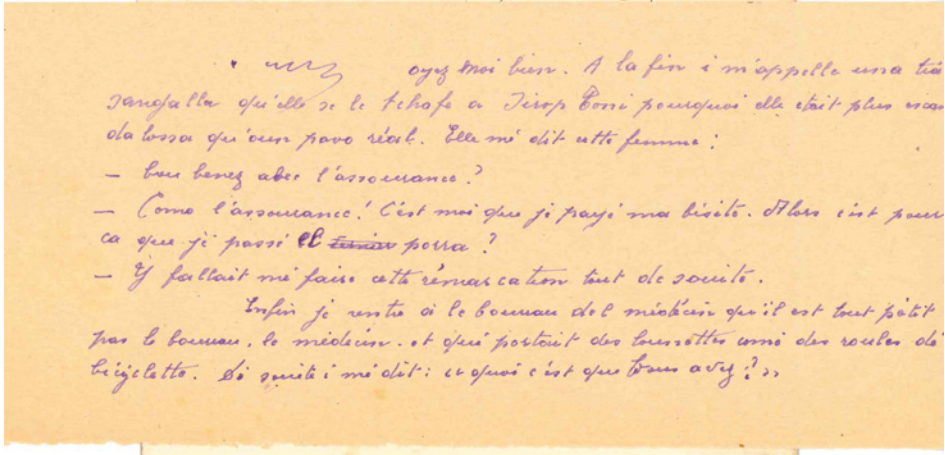 oyez moi bien. A la fin i m'appelle una tiá
sangalla qu'elle se le tchafe a Sirop Toni pourquoi elle était plus escan
dalossa qu'oun pavo réal. Elle mé dit cette femme :
– bou benez abec l'assourance ?
– Como l'assourance ! C'est moi que jé payé ma bisite. Alors c'est pour
ca que jé passé el porra ?
– Y fallait mé faire cette rémarcation tout de souite.
Enfin jé rentre à le boureau del médécin qu'il est tout pétit
pas le boureau, le médécin. et qué portait des loussettes comé des roules dé
bicyclette. Dé souite i mé dit : et quoi c'est que bous avez ? »